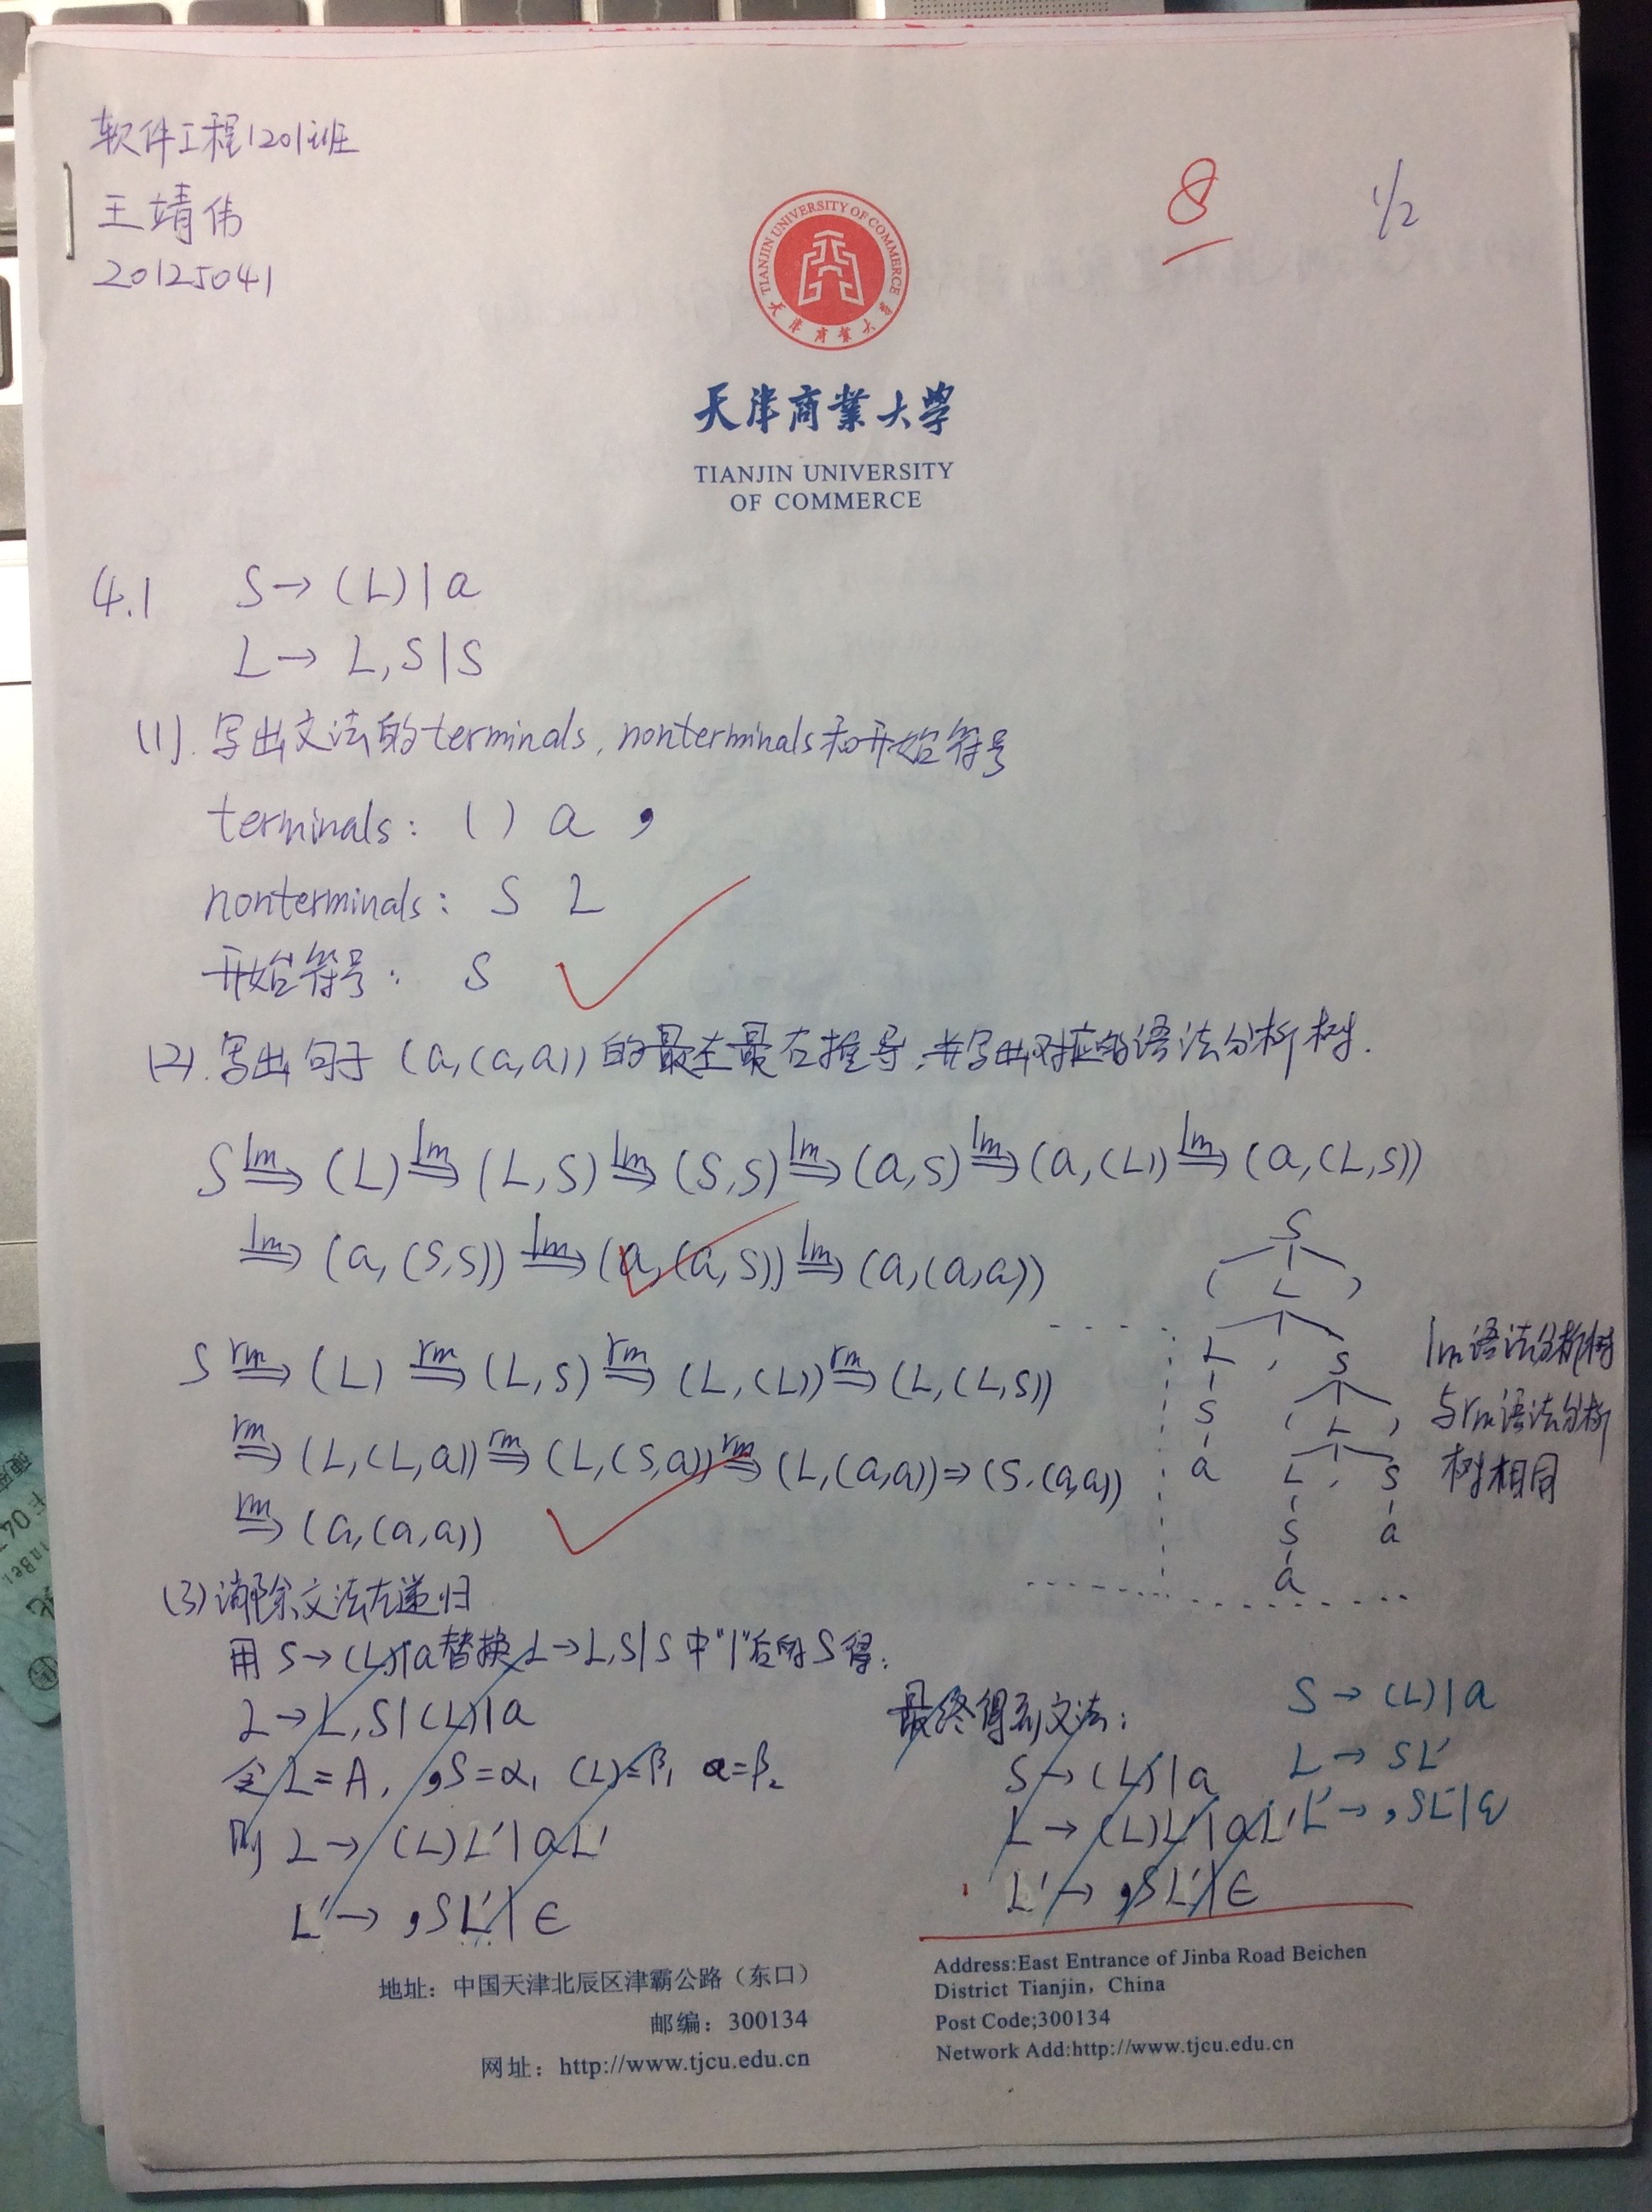 软件工程1201班
王靖伟
20125041
8
1/2
TIANJIN UNIVERSITY OF COMMERCE
天津商業大學
天津商業大學
TIANJIN UNIVERSITY
OF COMMERCE
4.1 S→(L)|a
L→L,S|S
(1). 写出文法的terminals, nonterminals和开始符号
terminals: ( ) a ,
nonterminals: S L
开始符号: S
(2). 写出句子 (a,(a,a)) 的最左最右推导,并写出对应的语法分析树.
S lm⇒ (L) lm⇒ (L,S) lm⇒ (S,S) lm⇒ (a,S) lm⇒ (a,(L)) lm⇒ (a,(L,S))
lm⇒ (a,(S,S)) lm⇒ (a,(a,S)) lm⇒ (a,(a,a))
S rm⇒ (L) rm⇒ (L,S) rm⇒ (L,(L)) rm⇒ (L,(L,S))
rm⇒ (L,(L,a)) rm⇒ (L,(S,a)) rm⇒ (L,(a,a)) ⇒ (S,(a,a))
rm⇒ (a,(a,a))
S
( L )
L , S
S ( L )
a L , S
S a
a
lm语法分析树
与rm语法分析
树相同
(3) 消除文法左递归
用 S→(L)|a 替换 L→L,S|S 中"|"后的S得:
L→L,S|(L)|a
令 L=A, ,S=α, (L)=β₁ a=β₂
则 L→(L)L'|aL'
L'→,SL'|ϵ
最终得到文法:
S→(L)|a
L→(L)L'|aL'
L'→,SL'|ϵ
S→(L)|a
L→SL'
L'→,SL'|ε
地址：中国天津北辰区津霸公路（东口）
邮编：300134
网址：http://www.tjcu.edu.cn
Address:East Entrance of Jinba Road Beichen
District Tianjin, China
Post Code;300134
Network Add:http://www.tjcu.edu.cn